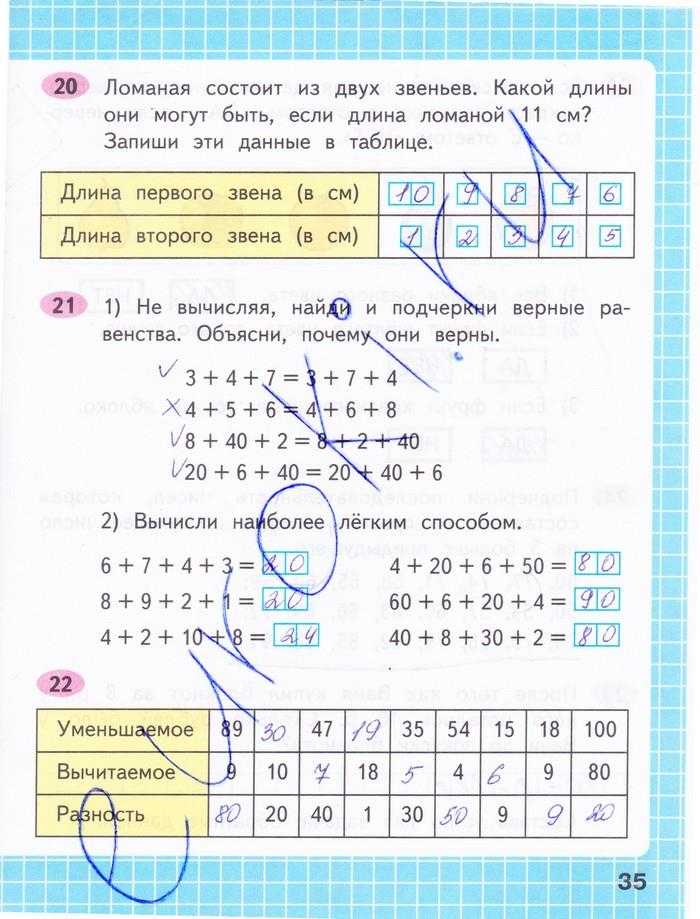 20 Ломаная состоит из двух звеньев. Какой длины
они могут быть, если длина ломаной 11 см?
Запиши эти данные в таблице.
Длина первого звена (в см) 10 9 8 7 6
Длина второго звена (в см) 1 2 3 4 5
21 1) Не вычисляя, найди и подчеркни верные ра-
венства. Объясни, почему они верны.
✓ 3 + 4 + 7 = 3 + 7 + 4
× 4 + 5 + 6 = 4 + 6 + 8
✓ 8 + 40 + 2 = 8 + 2 + 40
✓ 20 + 6 + 40 = 20 + 40 + 6
2) Вычисли наиболее лёгким способом.
6 + 7 + 4 + 3 = 20 4 + 20 + 6 + 50 = 80
8 + 9 + 2 + 1 = 20 60 + 6 + 20 + 4 = 90
4 + 2 + 10 + 8 = 24 40 + 8 + 30 + 2 = 80
22
Уменьшаемое 89 30 47 19 35 54 15 18 100
Вычитаемое 9 10 7 18 5 4 6 9 80
Разность 80 20 40 1 30 50 9 9 20
35